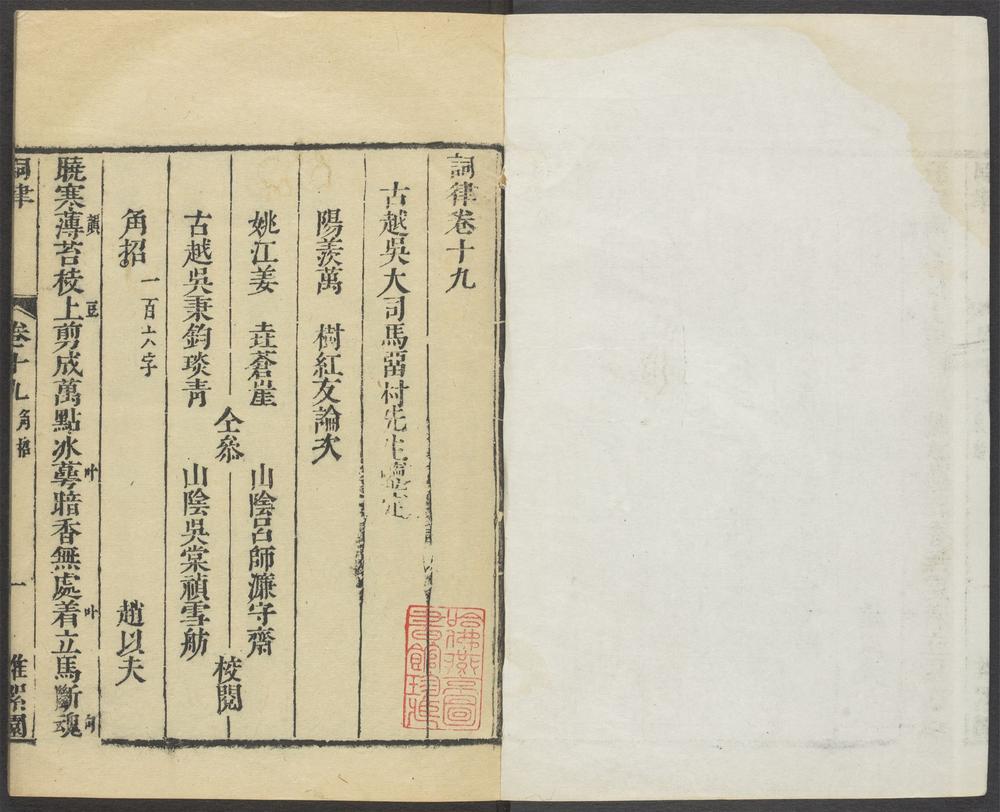 詞律卷十九
古越吳大司馬留村先生鑒定
陽羨萬　樹紅友論次
姚江姜　垚蒼崖　山陰呂師濂守齋
仝叅　校閱
古越吳秉鈞琰青　山陰吳棠禎雪舫
角招　一百六字　趙以夫
曉寒薄韻苔棱上豆剪成萬點冰萼叶暗香無處着叶立馬斷魂句
詞律　卷十九　角招　一　堆絮園
哈佛燕京圖書館珍藏